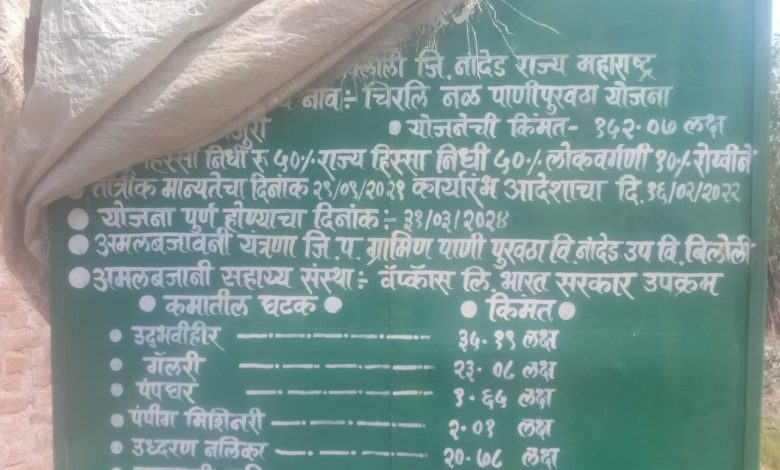 जि. नांदेड राज्य महाराष्ट्र
नाव:- चिरलि नळ पाणीपुरवठा योजना
योजनेची किंमत- १५२.०७ लक्ष
हिस्सा निधी रु ५०% राज्य हिस्सा निधी ५०% लोकवर्गणी १०% रोखीने
तांत्रीक मान्यतेचा दिनांक २९/०९/२०२१ कार्यारंभ आदेशाचा दि. १६/०२/२०२२
योजना पुर्ण होण्याचा दिनांक:- ३१/०३/२०२४
अमलबजावनी यंत्रणा जि.प. ग्रामिण पाणी पुरवठा वि नांदेड उप वि. बिलोली
अमलबजानी सहाय्य संस्था:- वॅप्कॅास लि. भारत सरकार उपक्रम
कमातील घटक किंमत
उद्भवीहीर ३५.१९ लक्ष
गॅलरी २३.०८ लक्ष
पंपघर १.६५ लक्ष
पंपींग मिशिनरी २.०१ लक्ष
उध्दरण नलिका २०.७८ लक्ष